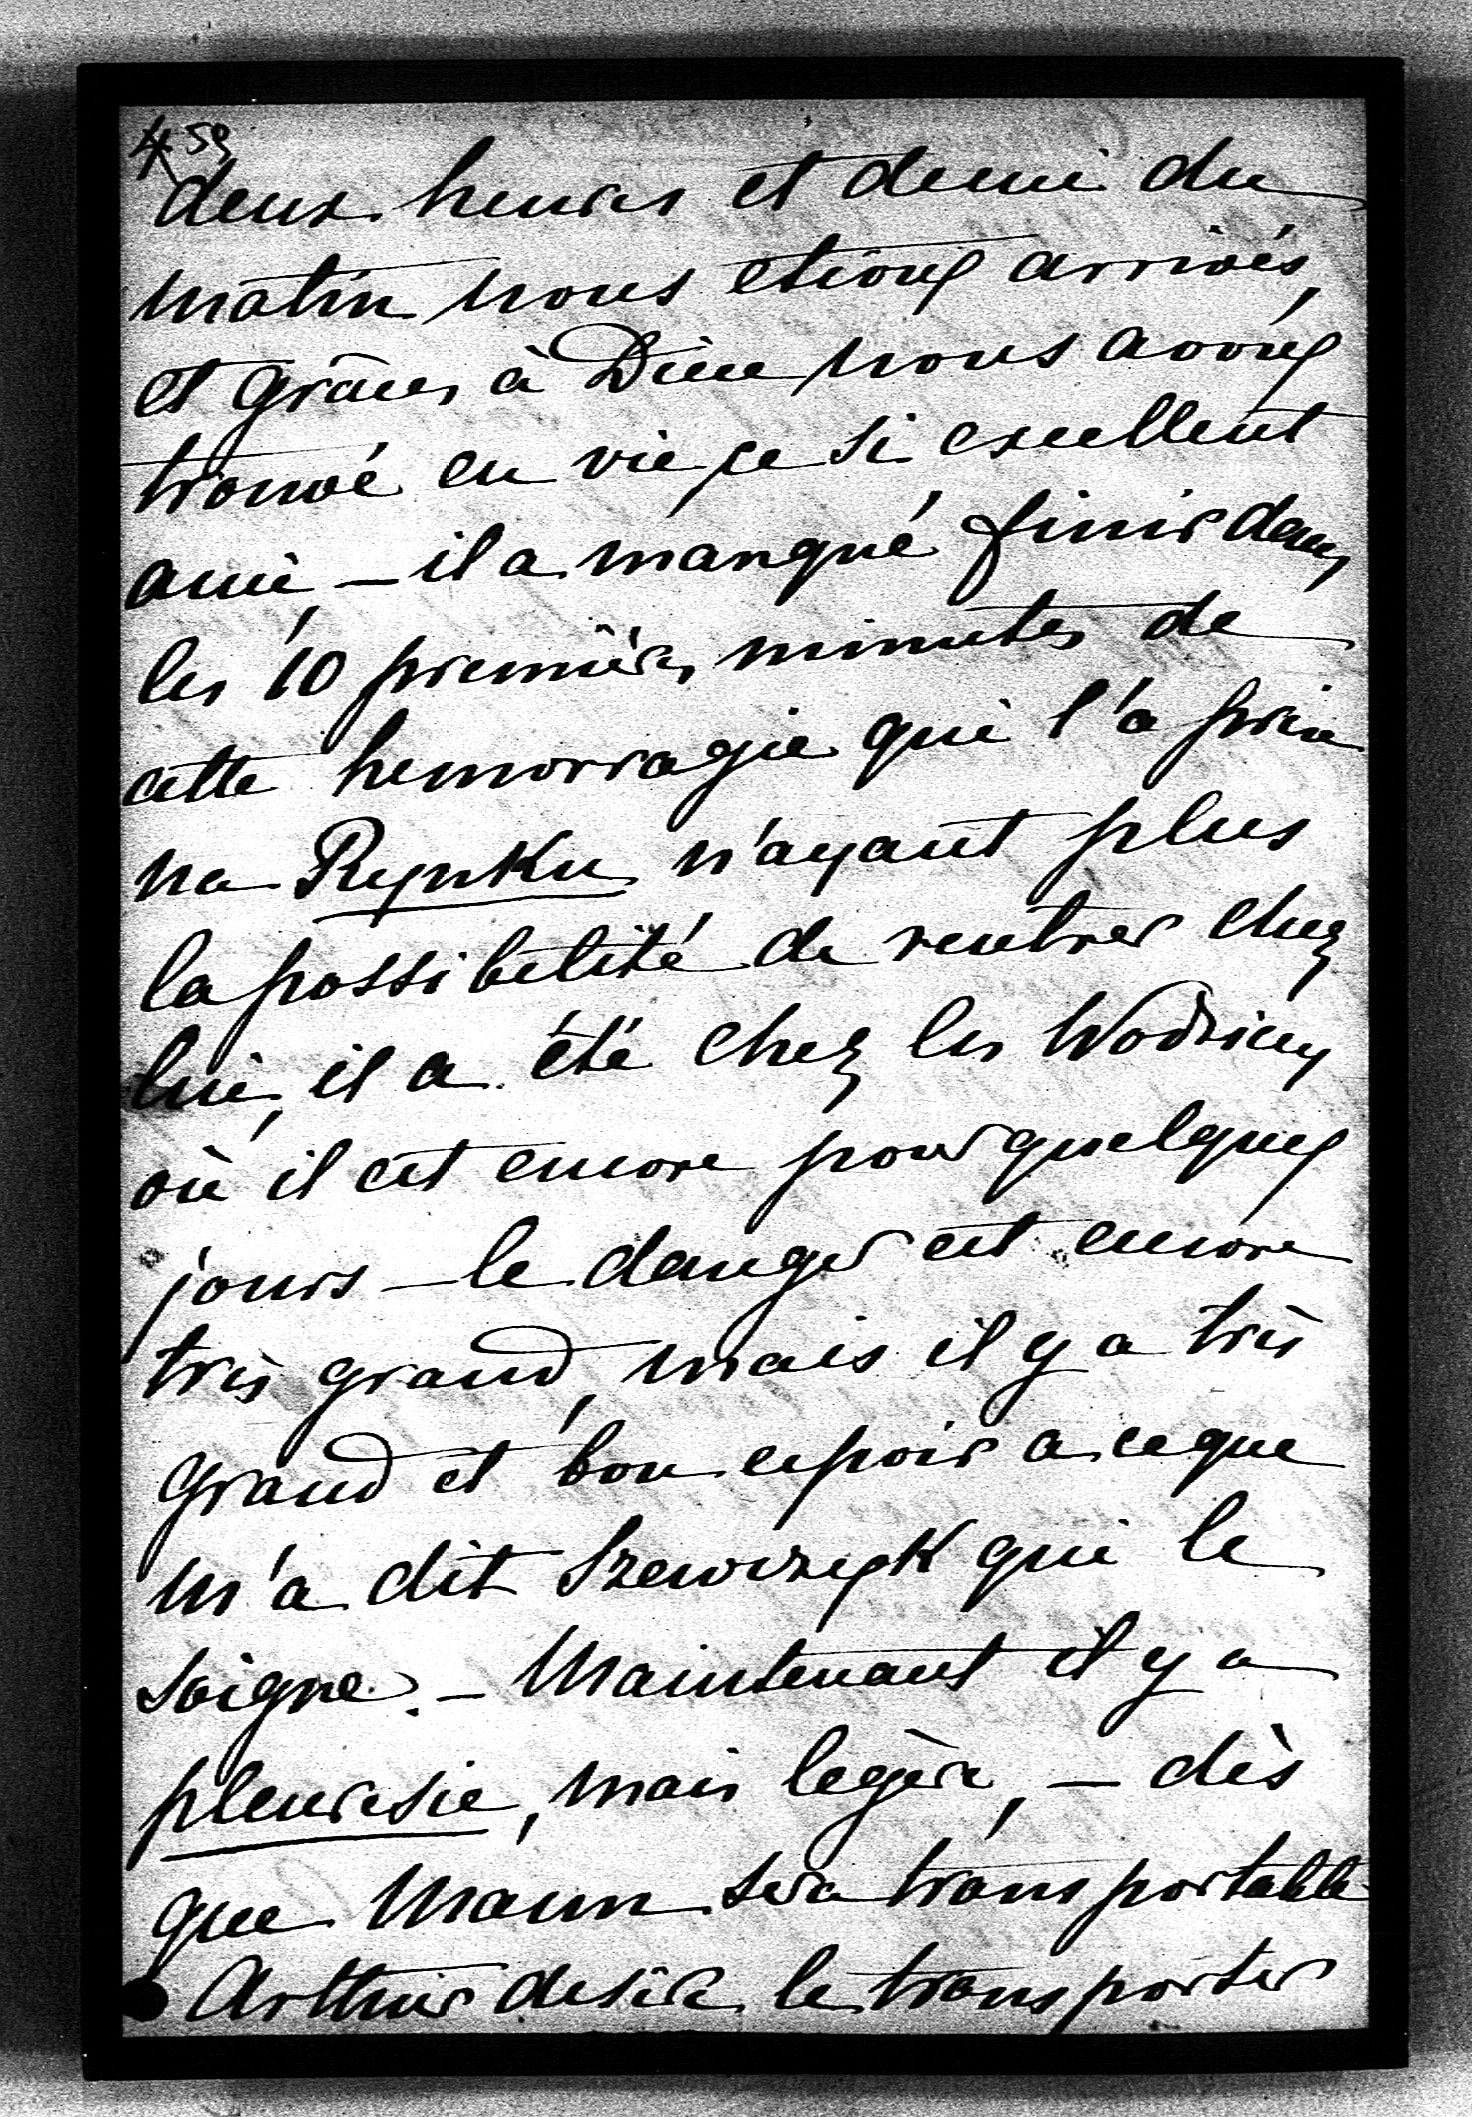 459
deux heures et demi du
matin nous etions arrivés,
et grâces à Dieu nous avons
trouvé en vie ce si excellent
ami, — il a manqué finir dans
les 10 premières minutes de
cette hemorragie qui l'a prise
na Rynku n'ayant plus
la possibilité de rentrer chez
lui, il a été chez les Wodzicky
où il est encore pour quelques
jours — le danger est encore
très grand, mais il y a très
grand et bon espoir a ce que
m'a dit Szewczyk qui le
soigne. — Maintenant il y a
pleuresie, mais legère, — dès
que Maun sera transportable
Arthur desire le transporter